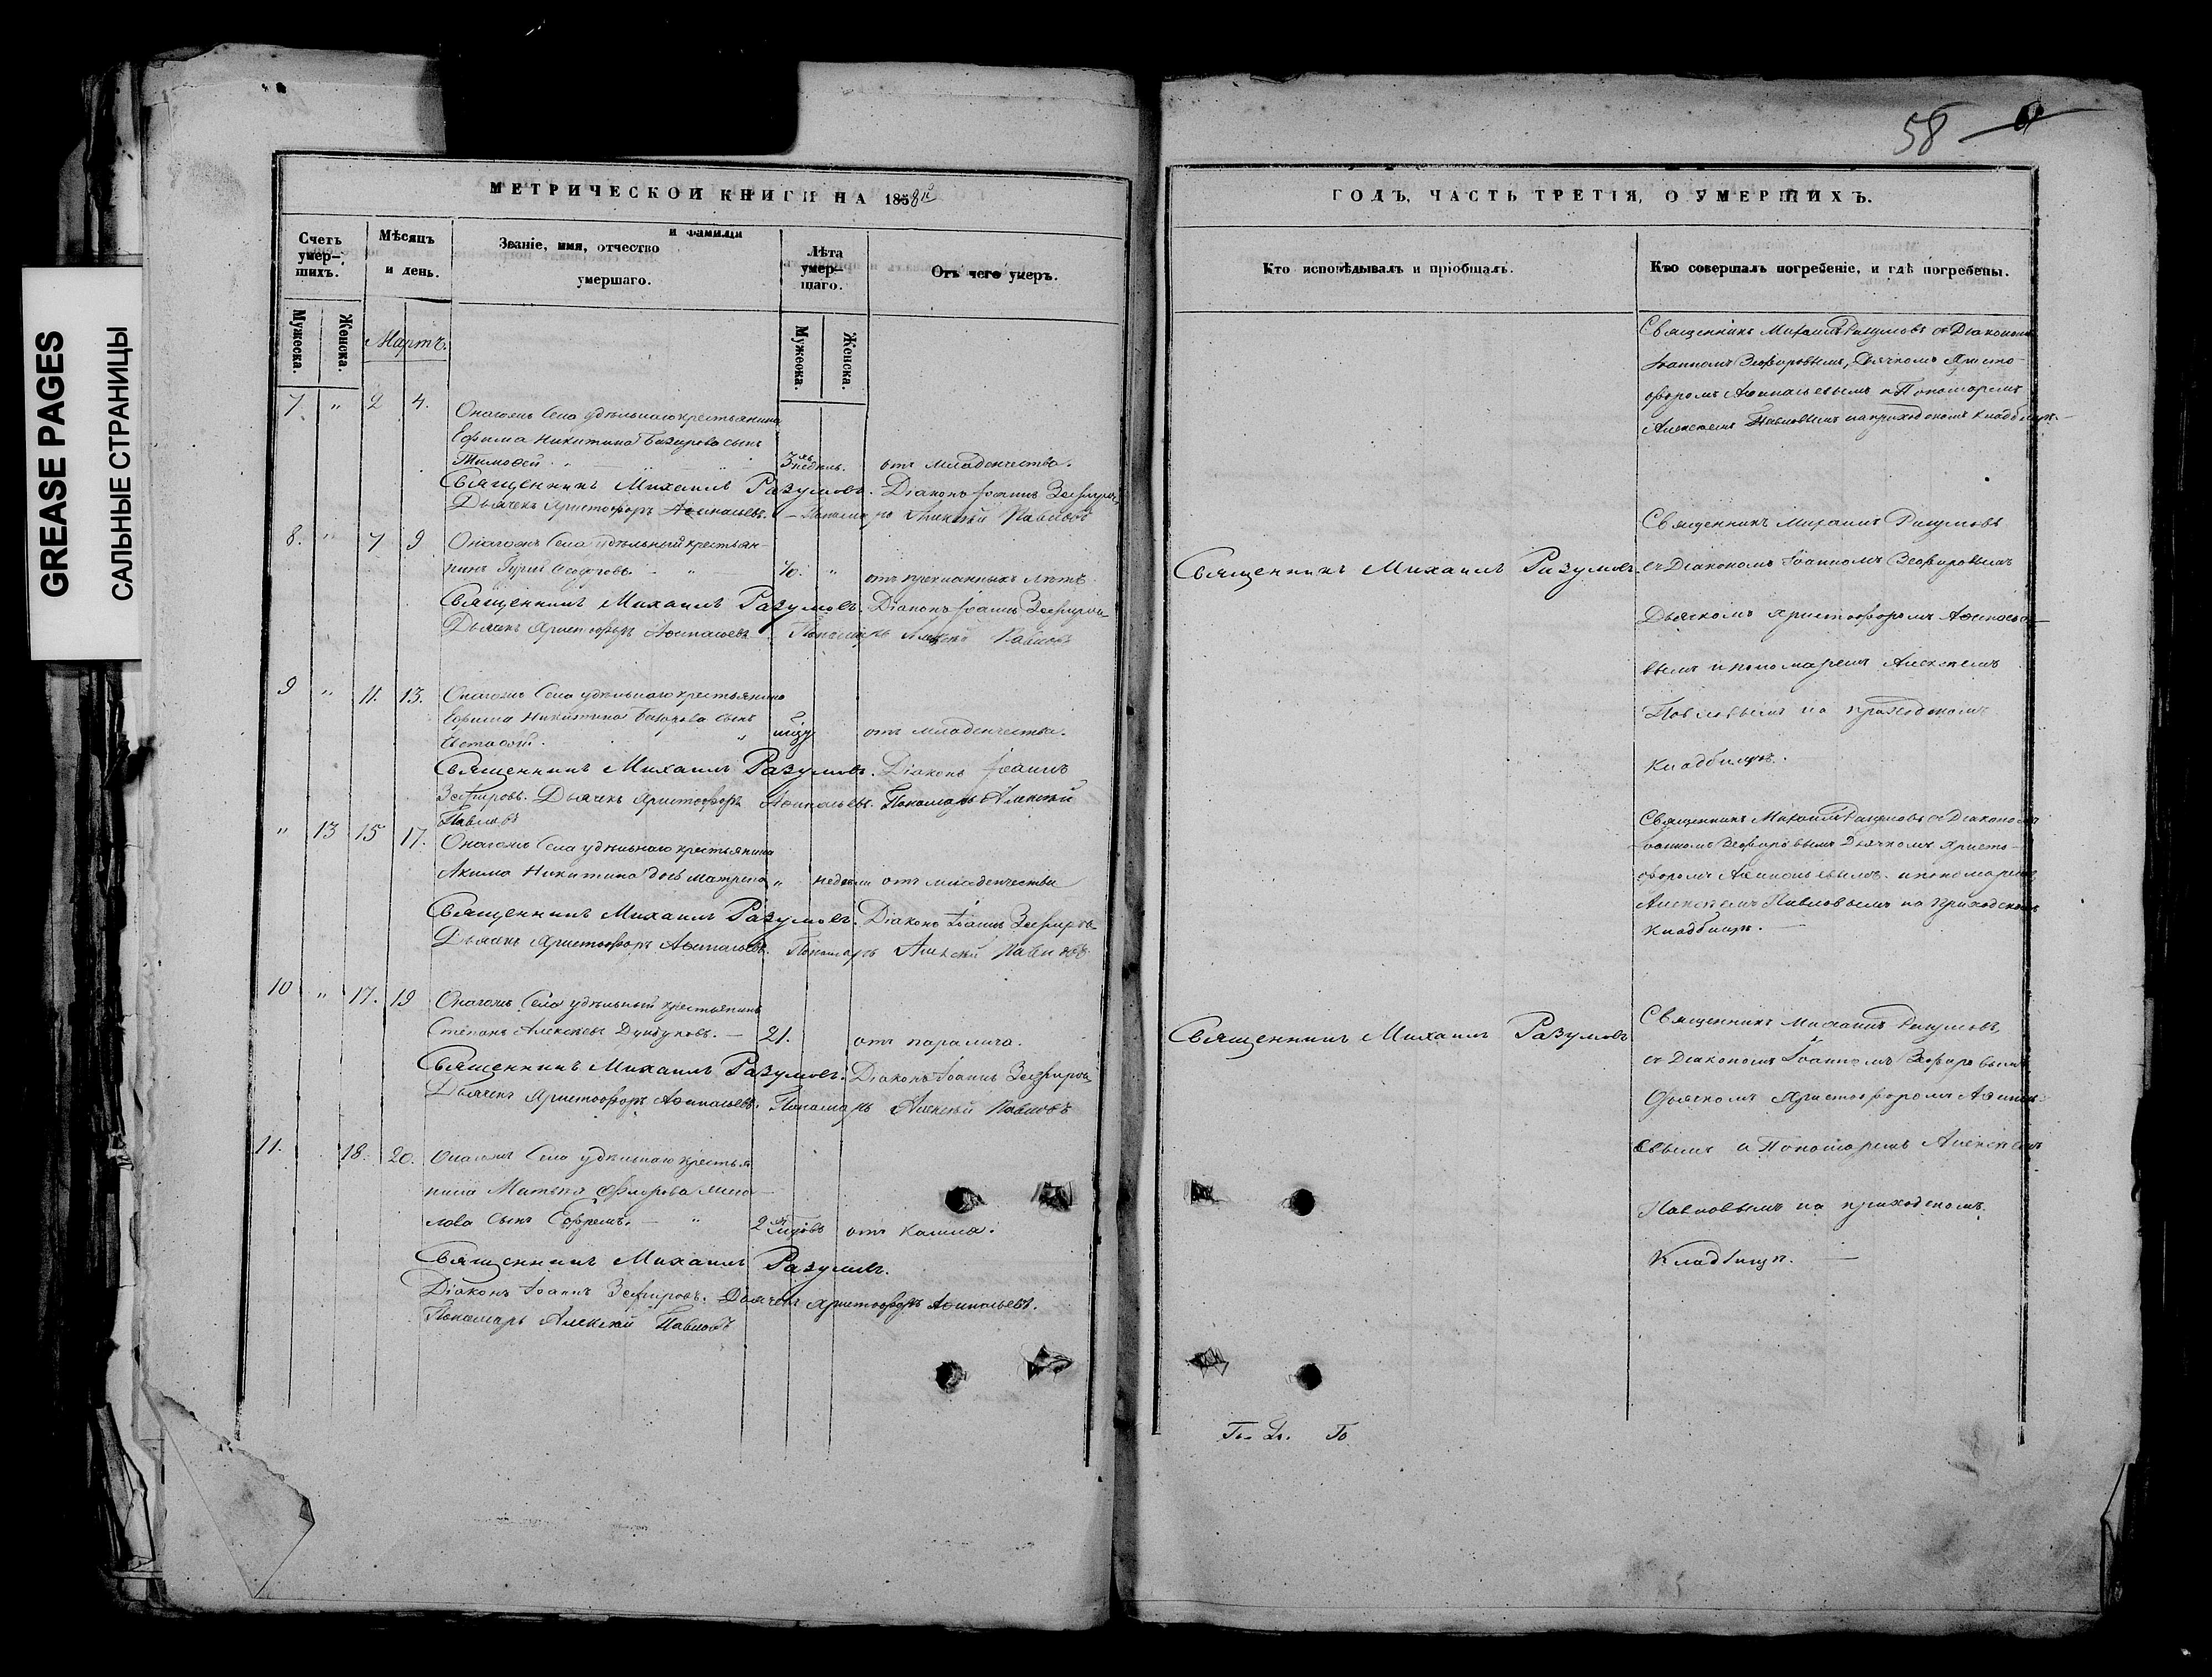 GREASE PAGES
САЛЬНЫЕ СТРАНИЦЫ
58
МЕТРИЧЕСКОЙ КНИГИ НА 1858й
ГОДЪ, ЧАСТЬ ТРЕТІЯ, О УМЕРШИХЪ.
Счетъ умер-шихъ.
Мѣсяцъ и день.
Званіе, имя, отчество и фамилія умершаго.
Лѣта умер-шаго.
Отъ чего умеръ.
Кто исповѣдывалъ и пріобщалъ.
Кто совершалъ погребеніе, и гдѣ погребены.
Мужеска.
Женска.
Мартъ.
Мужеска.
Женска.
7. " 2 4.
Онагожъ Села удѣльнаго крестьянина
Ефима Никитина сынъ
Тимофей 3 недѣль. отъ младенчества.
Священникъ Михаилъ Разумовъ. Діаконъ Іоаннъ Зефировъ
Дьячекъ Христофоръ Афанасьевъ. Пономарь Алексѣй Павловъ
Священникъ Михаилъ Разумовъ съ Діакономъ
Іоанномъ Зефировымъ, Дьячкомъ Христо-
форомъ Афанасьевымъ и Пономаремъ
Алексѣемъ Павловымъ на приходскомъ кладбищѣ.
8. " 7 9
Онагожъ Села удѣльный крестьян-
инъ Гурій Ѳедоровъ 70. " отъ преклонныхъ лѣтъ
Священникъ Михаилъ Разумовъ. Діаконъ Іоаннъ Зефировъ
Дьячекъ Христофоръ Афанасьевъ Пономарь Алексѣй Павловъ
Священникъ Михаилъ Разумовъ.
Священникъ Михаилъ Разумовъ
съ Діакономъ Іоанномъ Зефировымъ
Дьячкомъ Христофоромъ Афанасье-
вымъ и пономаремъ Алексѣемъ
Павловымъ на приходскомъ
Кладбищѣ.
9 " 11. 13.
Онагожъ Села удѣльнаго крестьянина
Ефима Никитина сынъ
отъ младенчества.
Священникъ Михаилъ Разумовъ. Діаконъ Іоаннъ
Зефировъ. Дьячекъ Христофоръ Афанасьевъ. Пономарь Алексѣй
Павловъ
" 13 15 17.
Онагожъ Села удѣльнаго крестьянина
Акима Никитина дочь Матрена " недѣли отъ младенчества
Священникъ Михаилъ Разумовъ. Діаконъ Іоаннъ Зефировъ
Дьячекъ Христофоръ Афанасьевъ. Пономарь Алексѣй Павловъ
Священникъ Михаилъ Разумовъ съ Діакономъ
Іоанномъ Зефировымъ Дьячкомъ Христо-
форомъ Афанасьевымъ и пономаремъ
Алексѣемъ Павловымъ на приходскомъ
Кладбищѣ.
10 " 17. 19
Онагожъ Села удѣльный крестьянинъ
Степанъ Алексѣевъ 21. отъ паралича.
Священникъ Михаилъ Разумовъ. Діаконъ Іоаннъ Зефировъ
Дьячекъ Христофоръ Афанасьевъ. Пономарь Алексѣй Павловъ
Священникъ Михаилъ Разумовъ
Священникъ Михаилъ Разумовъ
съ Діакономъ Іоанномъ Зефировымъ
Дьячкомъ Христофоромъ Афанась-
евымъ и Пономаремъ Алексѣемъ
Павловымъ на приходскомъ
Кладбищѣ.
11. 18. 20.
Онагожъ Села удѣльнаго крестья-
нина Матвѣя Фролова
сынъ Ефремъ. 2 годовъ отъ кашля.
Священникъ Михаилъ Разумовъ.
Діаконъ Іоаннъ Зефировъ. Дьячекъ Христофоръ Афанасьевъ.
Пономарь Алексѣй Павловъ